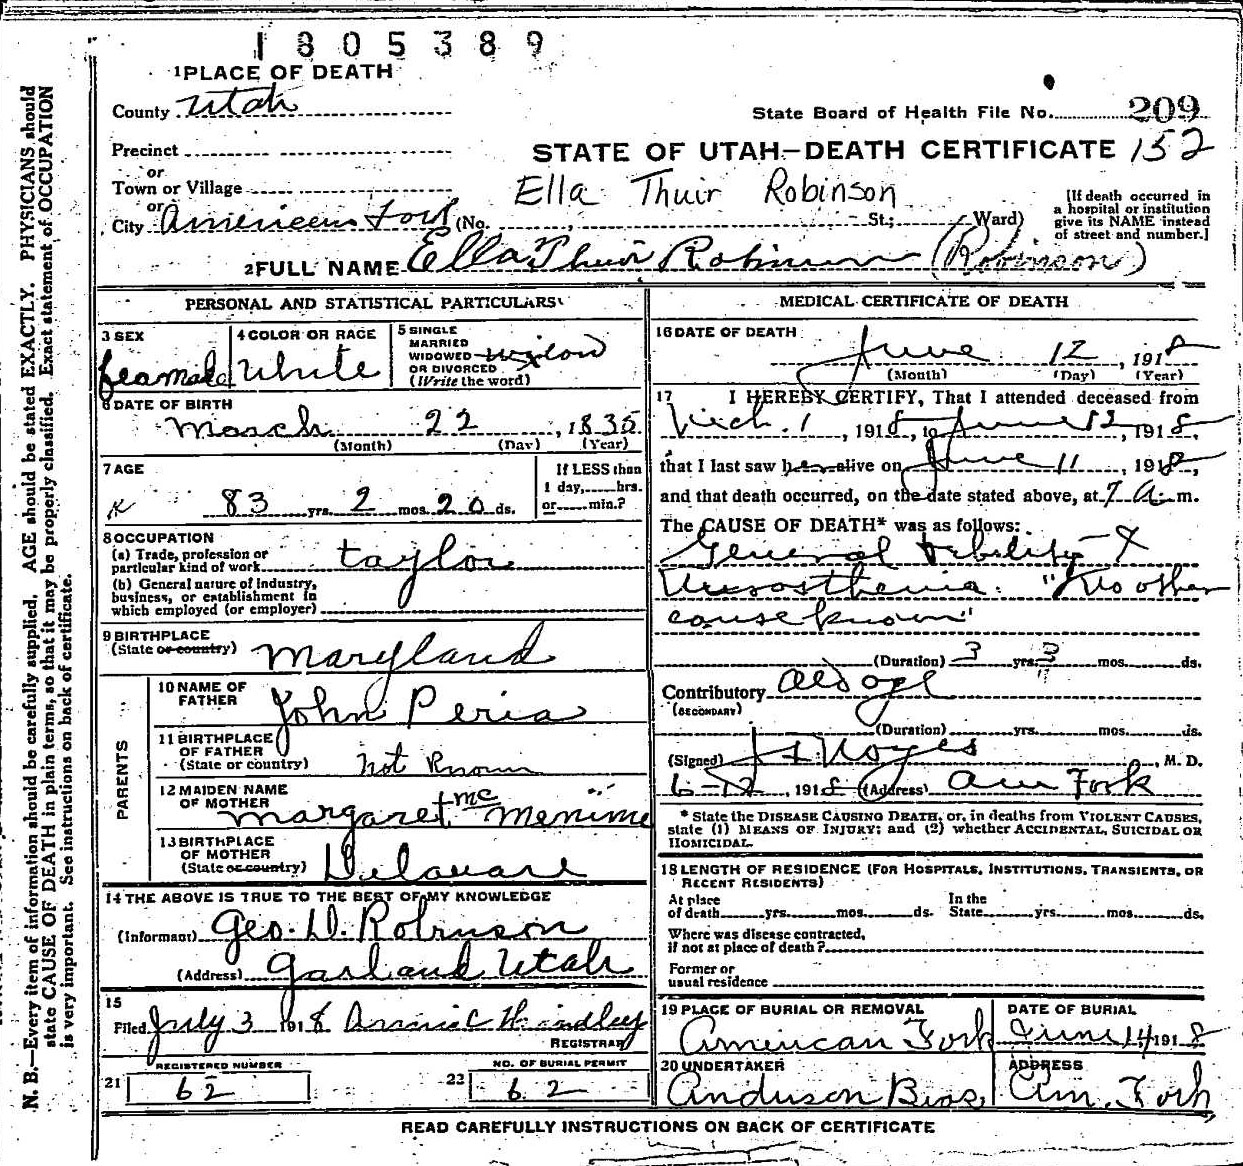 1805389
1 PLACE OF DEATH
County Utah
State Board of Health File No. 209
Precinct
or
STATE OF UTAH—DEATH CERTIFICATE 152
Town or Village
Ella Thuir Robinson
or
City American Fork (No. St.; Ward)
[If death occurred in
a hospital or institution
give its NAME instead
of street and number.]
2 FULL NAME Ella Thuir Robinson (Robinson)
PERSONAL AND STATISTICAL PARTICULARS
3 SEX
feamale
4 COLOR OR RACE
White
5 SINGLE
MARRIED
WIDOWED widow
OR DIVORCED
(Write the word)
6 DATE OF BIRTH
March 22, 1835
(Month) (Day) (Year)
7 AGE
83 yrs. 2 mos. 20 ds.
If LESS than
1 day, hrs.
or min.?
8 OCCUPATION
(a) Trade, profession or
particular kind of work taylor
(b) General nature of industry,
business, or establishment in
which employed (or employer)
9 BIRTHPLACE
(State or country) Maryland
PARENTS
10 NAME OF
FATHER John Peria
11 BIRTHPLACE
OF FATHER
(State or country) not Known
12 MAIDEN NAME
OF MOTHER Margaret Mc Menime
13 BIRTHPLACE
OF MOTHER
(State or country) Delaware
14 THE ABOVE IS TRUE TO THE BEST OF MY KNOWLEDGE
(Informant) Geo. D. Robinson
(Address) Garland Utah
15
Filed July 3 1918 Annie C Hindley
REGISTRAR
REGISTERED NUMBER
21 62
NO. OF BURIAL PERMIT
22 62
MEDICAL CERTIFICATE OF DEATH
16 DATE OF DEATH
June 12, 1918
(Month) (Day) (Year)
17 I HEREBY CERTIFY, That I attended deceased from
1, 1918, to June 12, 1918,
that I last saw her alive on June 11, 1918,
and that death occurred, on the date stated above, at 7 A. m.
The CAUSE OF DEATH* was as follows:
General debility &
"No other
cause known"
(Duration) 3 yrs. 3 mos. ds.
Contributory Old age
(SECONDARY)
(Duration) yrs. mos. ds.
(Signed) Noyes, M. D.
6-12, 1918 (Address) Am Fork
* State the DISEASE CAUSING DEATH, or, in deaths from VIOLENT CAUSES,
state (1) MEANS OF INJURY; and (2) whether ACCIDENTAL, SUICIDAL OR
HOMICIDAL.
18 LENGTH OF RESIDENCE (FOR HOSPITALS, INSTITUTIONS, TRANSIENTS, OR
RECENT RESIDENTS)
At place In the
of death yrs. mos. ds. State yrs. mos. ds.
Where was disease contracted,
if not at place of death?
Former or
usual residence
19 PLACE OF BURIAL OR REMOVAL
American Fork
DATE OF BURIAL
June 14 1918
20 UNDERTAKER
Anderson Bros.
ADDRESS
Am. Fork
READ CAREFULLY INSTRUCTIONS ON BACK OF CERTIFICATE
N. B.—Every item of information should be carefully supplied. AGE should be stated EXACTLY. PHYSICIANS should
state CAUSE OF DEATH in plain terms, so that it may be properly classified. Exact statement of OCCUPATION
is very important. See instructions on back of certificate.